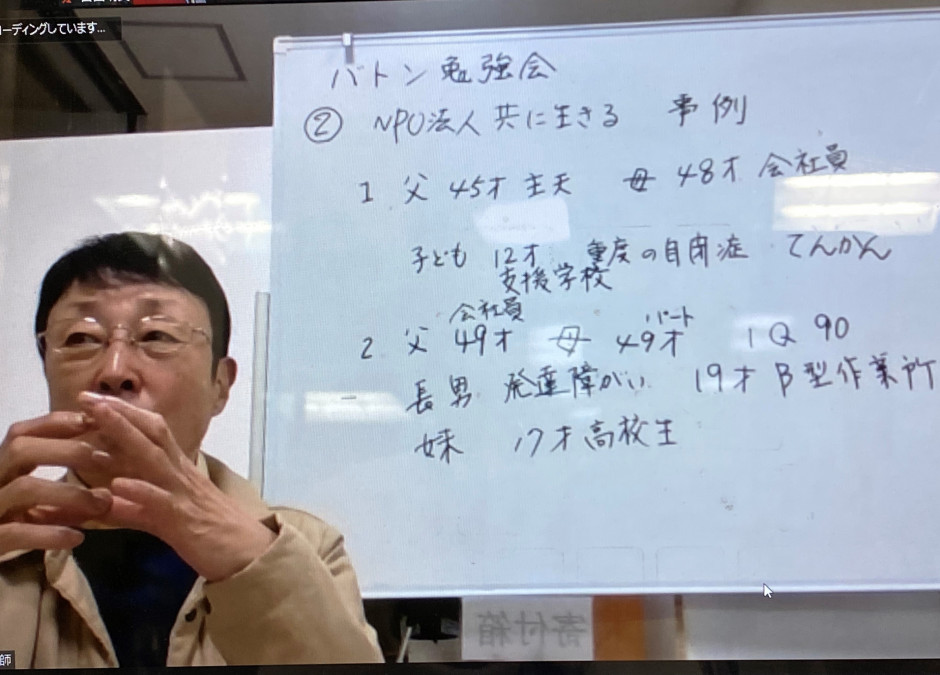 ーディングしています...
バトン勉強会
② NPO法人共に生きる 事例
1 父 45才 主夫 母 48才 会社員
子ども 12才 重度の自閉症 てんかん
支援学校
会社員 パート
2 父 49才 母 49才 IQ 90
長男 発達障がい 19才 B型作業所
妹 17才高校生
寄付箱
師